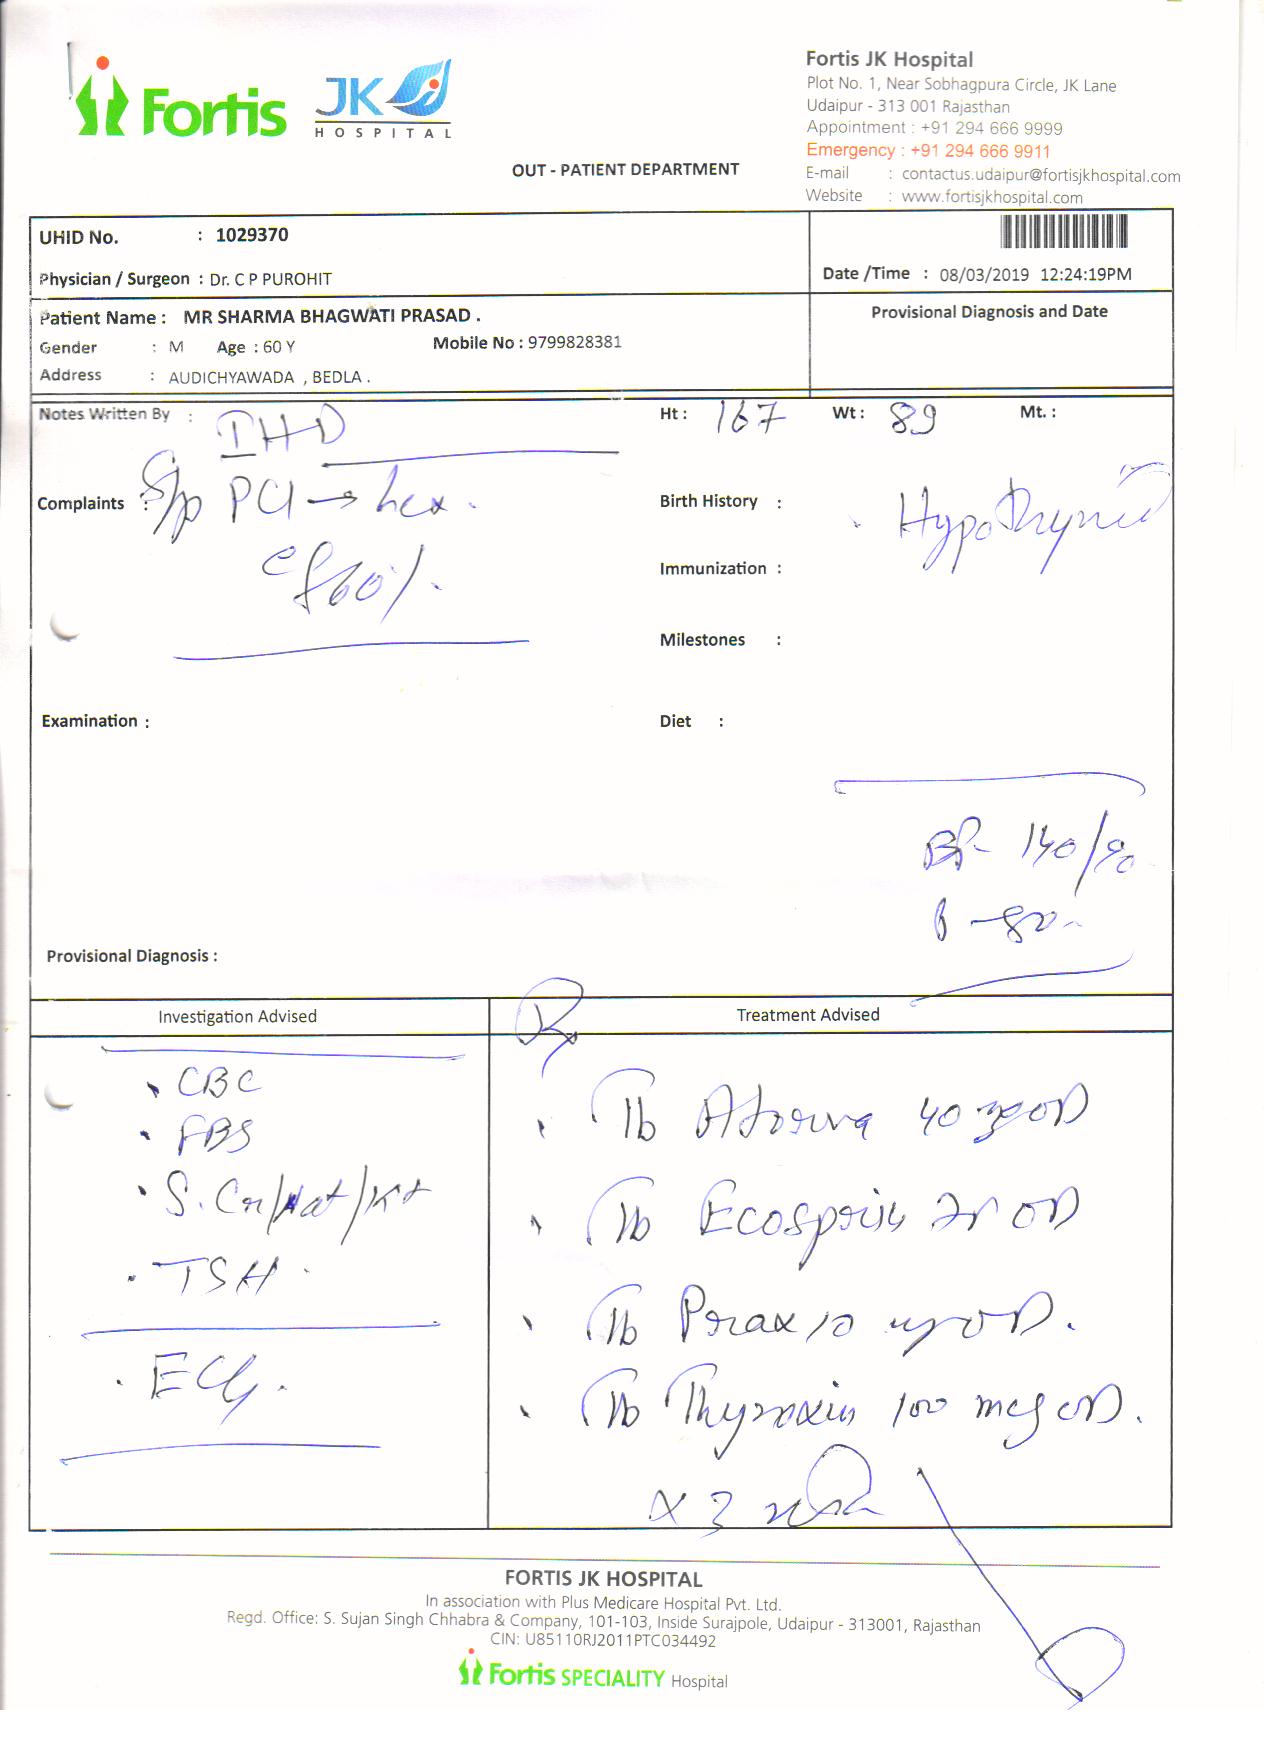 Fortis JK HOSPITAL
Fortis JK Hospital
Plot No. 1, Near Sobhagpura Circle, JK Lane
Udaipur - 313 001 Rajasthan
Appointment : +91 294 666 9999
Emergency : +91 294 666 9911
E-mail : contactus.udaipur@fortisjkhospital.com
Website : www.fortisjkhospital.com
OUT - PATIENT DEPARTMENT
UHID No. : 1029370
Physician / Surgeon : Dr. C P PUROHIT
Date /Time : 08/03/2019 12:24:19PM
Patient Name : MR SHARMA BHAGWATI PRASAD .
Gender : M Age : 60 Y Mobile No : 9799828381
Address : AUDICHYAWADA , BEDLA .
Provisional Diagnosis and Date
Notes Written By : IHD
Ht : 167 Wt : 89 Mt. :
Complaints : S/p PCI → Lcx .
ef 60%.
Birth History :
Hypothyroid
Immunization :
Milestones :
Examination :
Diet :
BP- 140/90
Provisional Diagnosis :
Investigation Advised
CBC
FBS
S. Cr/Na+/K+
TSH
ECG.
Treatment Advised
Rx
Tb Atorva 40 mg OD
Tb Ecosprin 75 OD
Tb Prax 10 mg OD.
Tb Thyroxin 100 mcg OD.
x 3
FORTIS JK HOSPITAL
In association with Plus Medicare Hospital Pvt. Ltd.
Regd. Office: S. Sujan Singh Chhabra & Company, 101-103, Inside Surajpole, Udaipur - 313001, Rajasthan
CIN: U85110RJ2011PTC034492
Fortis SPECIALITY Hospital